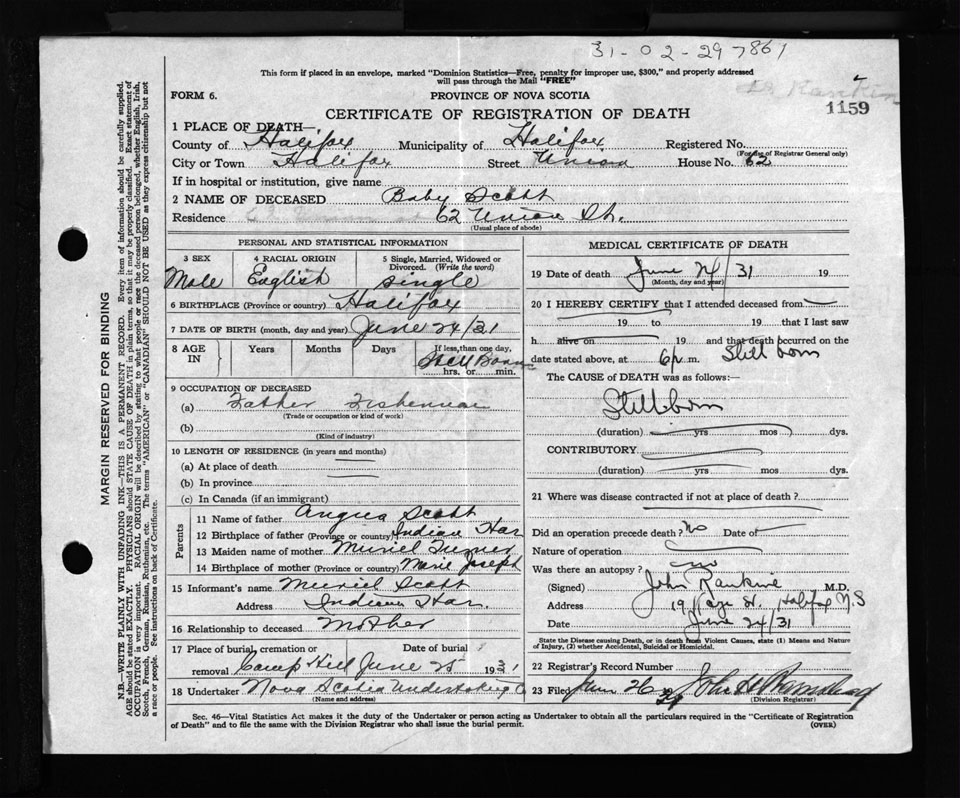 31-02-297861
This form if placed in an envelope, marked "Dominion Statistics—Free, penalty for improper use, $300," and properly addressed
will pass through the Mail "FREE"
Dr Rankin
FORM 6.
PROVINCE OF NOVA SCOTIA
1159
CERTIFICATE OF REGISTRATION OF DEATH
1 PLACE OF DEATH—
County of Halifax Municipality of Halifax Registered No.
(For use of Registrar General only)
City or Town Halifax Street Union House No. 62
If in hospital or institution, give name
2 NAME OF DECEASED Baby Scott
Residence 62 Union St.
(Usual place of abode)
PERSONAL AND STATISTICAL INFORMATION
3 SEX
Male
4 RACIAL ORIGIN
English
5 Single, Married, Widowed or
Divorced. (Write the word)
single
6 BIRTHPLACE (Province or country) Halifax
7 DATE OF BIRTH (month, day and year) June 24/31
8 AGE IN
Years
Months
Days
If less than one day,
Still Born
hrs. or min.
9 OCCUPATION OF DECEASED
(a) Father Fisherman
(Trade or occupation or kind of work)
(b)
(Kind of industry)
10 LENGTH OF RESIDENCE (in years and months)
(a) At place of death
(b) In province
(c) In Canada (if an immigrant)
Parents
11 Name of father Angus Scott
12 Birthplace of father (Province or country) Indian Har
13 Maiden name of mother Muriel Turner
14 Birthplace of mother (Province or country) Marie Joseph
15 Informant's name Muriel Scott
Address Indian Har.
16 Relationship to deceased Mother
17 Place of burial, cremation or Date of burial
removal Camp Hill June 25 1931
18 Undertaker Nova Scotia Undertaking Co
(Name and address)
MEDICAL CERTIFICATE OF DEATH
19 Date of death June 24/31 19
(Month, day and year)
20 I HEREBY CERTIFY that I attended deceased from
19 to 19 that I last saw
h alive on 19 and that death occurred on the
date stated above, at 6 p m. Still born
The CAUSE OF DEATH was as follows:—
Still-born
(duration) yrs mos dys.
CONTRIBUTORY
(duration) yrs mos dys.
21 Where was disease contracted if not at place of death?
Did an operation precede death? No Date of
Nature of operation
Was there an autopsy? no
(Signed) John Rankine M.D.
Address 19 St. Halifax N.S
Date June 24/31
State the Disease causing Death, or in death from Violent Causes, state (1) Means and Nature
of Injury, (2) whether Accidental, Suicidal or Homicidal.
22 Registrar's Record Number
23 Filed June 26 31 John
(Division Registrar)
Sec. 46—Vital Statistics Act makes it the duty of the Undertaker or person acting as Undertaker to obtain all the particulars required in the "Certificate of Registration
of Death" and to file the same with the Division Registrar who shall issue the burial permit. (OVER)
MARGIN RESERVED FOR BINDING
N.B.—WRITE PLAINLY WITH UNFADING INK—THIS IS A PERMANENT RECORD. Every item of information should be carefully supplied.
AGE should be stated EXACTLY. PHYSICIANS should STATE CAUSE OF DEATH in plain terms, so that it may be properly classified. Exact statement of
OCCUPATION is very important. RACIAL ORIGIN will be described by stating to what people or race the deceased person belonged, whether English, Irish,
Scotch, French, German, Russian, Ruthenian, etc. The terms "AMERICAN" or "CANADIAN" SHOULD NOT BE USED as they express citizenship but not
a race or people. See instructions on back of Certificate.